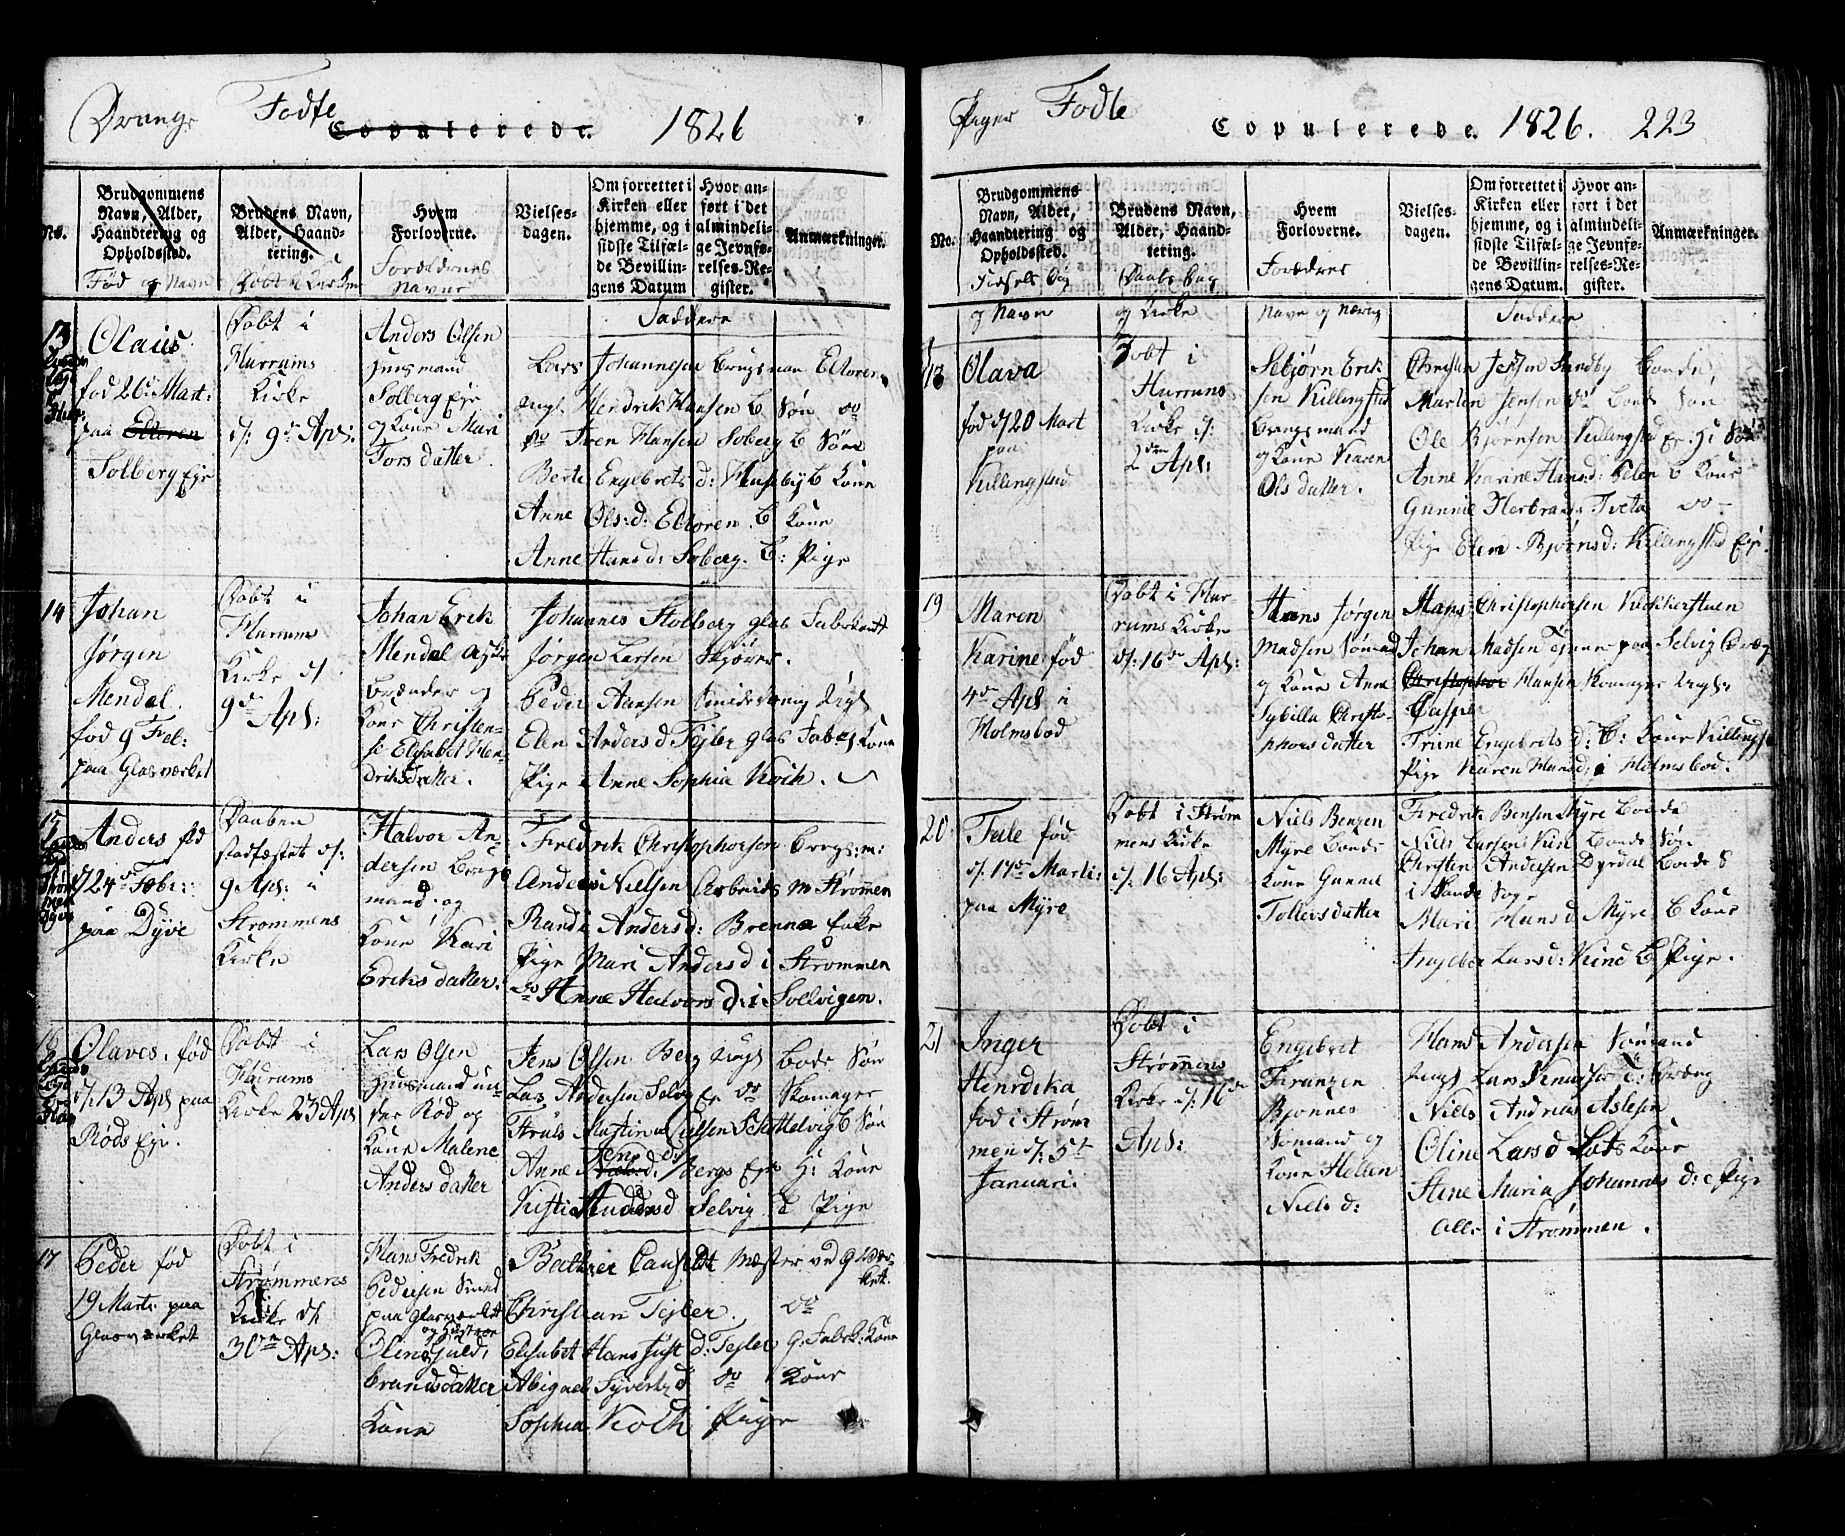 Drenge Fødte
Copulerede. 1826
No.
Brudgommens
Navn, Alder,
Haandtering og
Opholdssted.
Fød og Navn
Brudens Navn,
Alder, Haand-
tering.
Døbt i Kirken
Hvem
Forloverne.
Forældrenes
Navne
Vielses-
dagen.
Om forrettet i
Kirken eller
hjemme, og i
sidste Tilfæl-
de Bevillin-
gens Datum
Hvor an-
ført i det
almindeli-
ge Jevnfø-
relses-Re-
gister.
Anmærkninger.
Faddere
13
Olaus
fød 26de Mart:
paa Eltoren
Solberg Eje
Døbt i
Hurrums
Kirke
d: 9de Apl:
Anders Olsen
Huusmand
Solberg Eje
og Kone Mari
Torsdatter.
Lars Johannesen Brugsman Eltoren
Hendrik Hansen B Søn do
do Iven Hansen Soberg B Søn
Berte Engebrets d: Huseby B Kone
Anne Ols: d: Eltoren B Kone
Anne Hans d: Soberg. B: Pige
14
Johan
Jørgen
Mendal.
fød 9 Feb:
paa Glasværket
Døbt i
Hurrums
Kirke d
9de Apl:
Johan Erik
Mendal Aske
brænder og
Kone Christen-
se Elisabet Hen-
driksdatter.
Johannes Stolberg glas Fabrkant
Jørgen Larsen Skjører.
Peder Hansen Smidedreng Ugl
Elen Anders d Tejler glas Fab: Kone
Pige Anne Sophia Koih.
15
Anders fød
d 24de Febr:
paa Dyve
Daaben
stadfæstet d:
9 Apl: i
Strommens
Kirke
Halvor An-
dersen Brugs
mand og
Kone Kari
Eriksdatter.
Fredrik Christophersen Brugs: m:
Anders Nielsen Arbeids m Strømmen
Randi Anders d: Brenna Enke
Pige Mari Anders d i Strommen
do Anne Halvors d: i Solvigen.
16
Olaves, fød
d: 13 Apl paa
Røds Eje.
Døbt i
Hurums
Kirke 23 Apl
Lars Olsen
Huusmand un-
der Rød og
Kone Malene
Andersdatter
Jens Olsen Berg Ungl Bode Søn
Lars Andersen Selvig Ej do Skomager
Truls Martinus Selvig B Søn
Anne Jens d: Bergs Eje H: Kone
Kisti Knuds d Selvig B Pige
17
Peder fød
19 Marti paa
Glasværket
Døbt i
Strømmens
Kirke d:
30te Apl:
Hans Fredrik
Pedersen Smed
paa Glasværket
og Hustroe
Oline Guld-
brandsdatter
Kone
Baltzer Mæster ved Glasvær-
ket.
Christian Tejler. do
Elisabet Hans d: Tejler G: Fabrk: Kone
Abigael Syverts d do Kone
Sophia Koch Pige
Piger Fødte
Copulerede. 1826. 223
No.
Brudgommens
Navn, Alder,
Haandtering og
Opholdssted.
Fødsels Dag
og Navn
Brudens Navn,
Alder, Haand-
tering.
Daabs Dag
og Kirke
Hvem
Forloverne.
Forældres
Navn og Næring
Vielses-
dagen.
Om forrettet i
Kirken eller
hjemme, og i
sidste Tilfæl-
de Bevillin-
gens Datum.
Hvor an-
ført i det
almindeli-
ge Jevnfø-
relses-Re-
gister.
Anmærkninger.
Faddere
18
Olava
fød d 20 Mart
paa
Killingstad
Døbt i
Hurrums
Kirke d:
2den Apl:
Sebjørn Erik
sen Killingstad
Brugsmand
og Kone Karen
Olsdatter.
Christen Jensen Sundby Bonde
Marten Jensen do Bonde Søn,
Ole Bjørnsen Killingstad Ej: H: Søn
Anne Karine Hans d: Felen B Kone
Gunnie Herbrans Tveta do
Pige Elen Bjørns d: Killingstad Eje.
19
Maren
Karine fød
4de Apl i
Holmsbod
Døbt i Hur-
rums Kirke
d: 16de Apl:
Hans Jørgen
Madsen Sømand
og Kone Anne
Sybilla Christo-
phersdatter
Hans Christophersen Kiækkerstuen
Johan Madsen Tjener paa Selvig Dreng
Christopher Hansen Skomager Ungl:
Casper
Trine Engebrets d: B: Kone Killingst
Pige Karen Hans d: i Holmsbod.
20
Tale fød
d: 17de Marti:
paa Myre
Døbt i Strøm
mens Kirke
d: 16 Apl:
Niels Benzen
Myre Bonde
Kone Gunnil
Tollefsdatter
Fredrik Bensen Myre Bonde
Niels Larsen Kine Bonde Søn
Christen Andersen Dyrdal Bonde S
i Sande Sogn
Mari Hans d Myre B Kone
Ingebor Lars d: Kine B Pige.
21
Inger
Henrdika
fød i Strøm
men d: 5t
Januari:
Døbt i
Strømmens
Kirke d: 16de
Apl:
Engebret
Franzen
Bjønnes
Sømand og
Kone Hellen
Niels d:
Hans Andersen Sømand
Ungl Lars Knudsen T: Dræng
Niels Andreas Aslesen
Oline Lars d Lots Kone
Stine Maria Johannes d: e Pige
Alle i Strømmen.